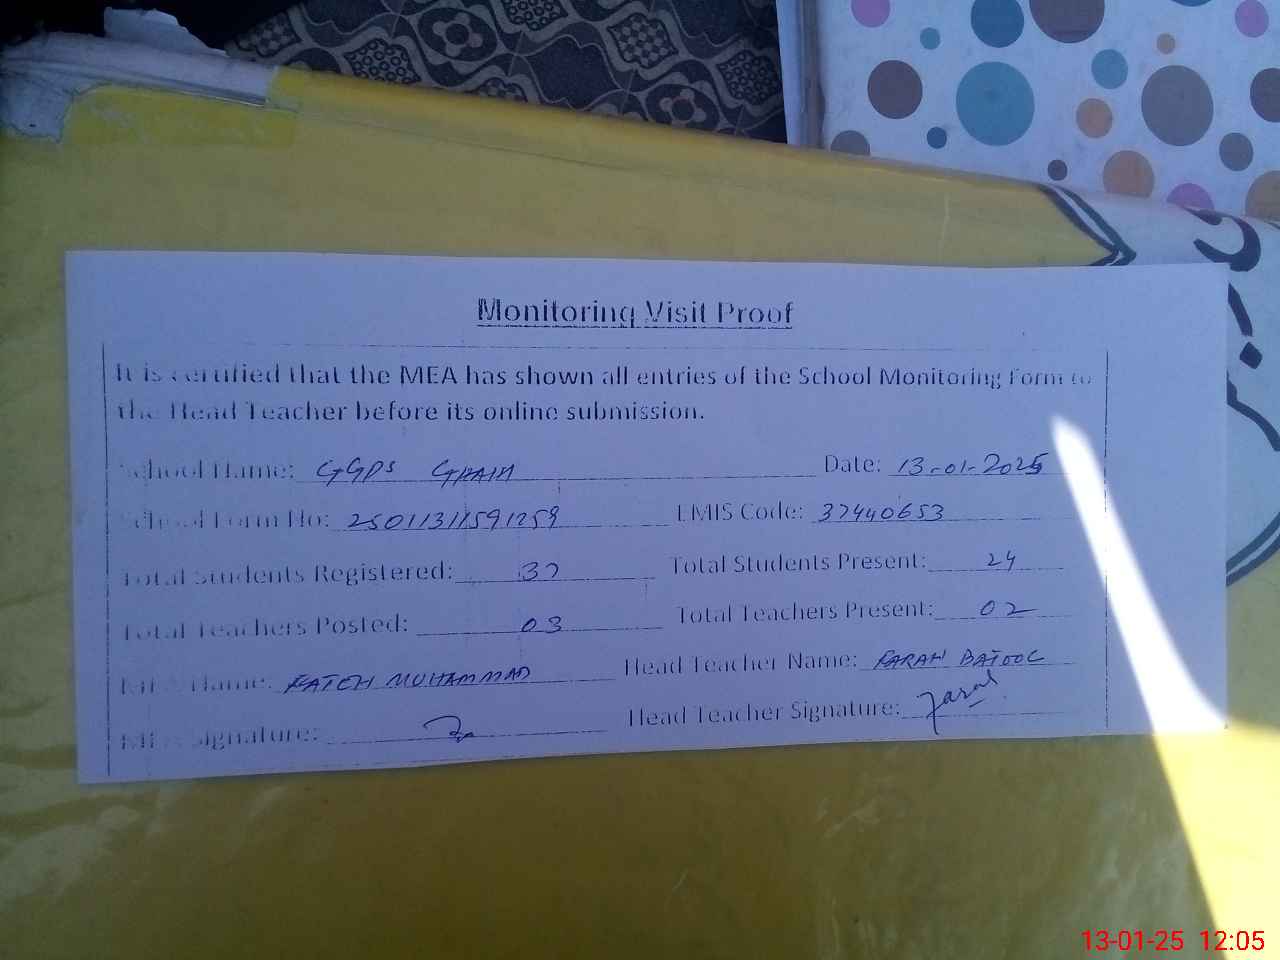 Monitoring Visit Proof
It is certified that the MEA has shown all entries of the School Monitoring Form to
the Head Teacher before its online submission.
School Name: GGPS Date: 13-01-2025
School Form No: EMIS Code: 37440653
Total Students Registered: 37 Total Students Present: 24
Total Teachers Posted: 03 Total Teachers Present: 02
MEA Name: FATEH MUHAMMAD Head Teacher Name: FARAH BATOOL
MEA Signature: Head Teacher Signature:
13-01-25 12:05